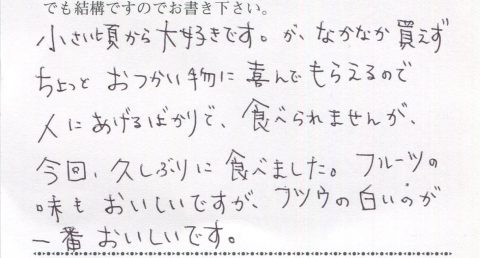 でも結構ですのでお書き下さい。
小さい頃から大好きです。が、なかなか買えず
ちょっと おつかい物に喜んでもらえるので
人にあげるばかりで、食べられませんが、
今回、久しぶりに食べました。フルーツの
味も おいしいですが、フツウの白いのが
一番 おいしいです。